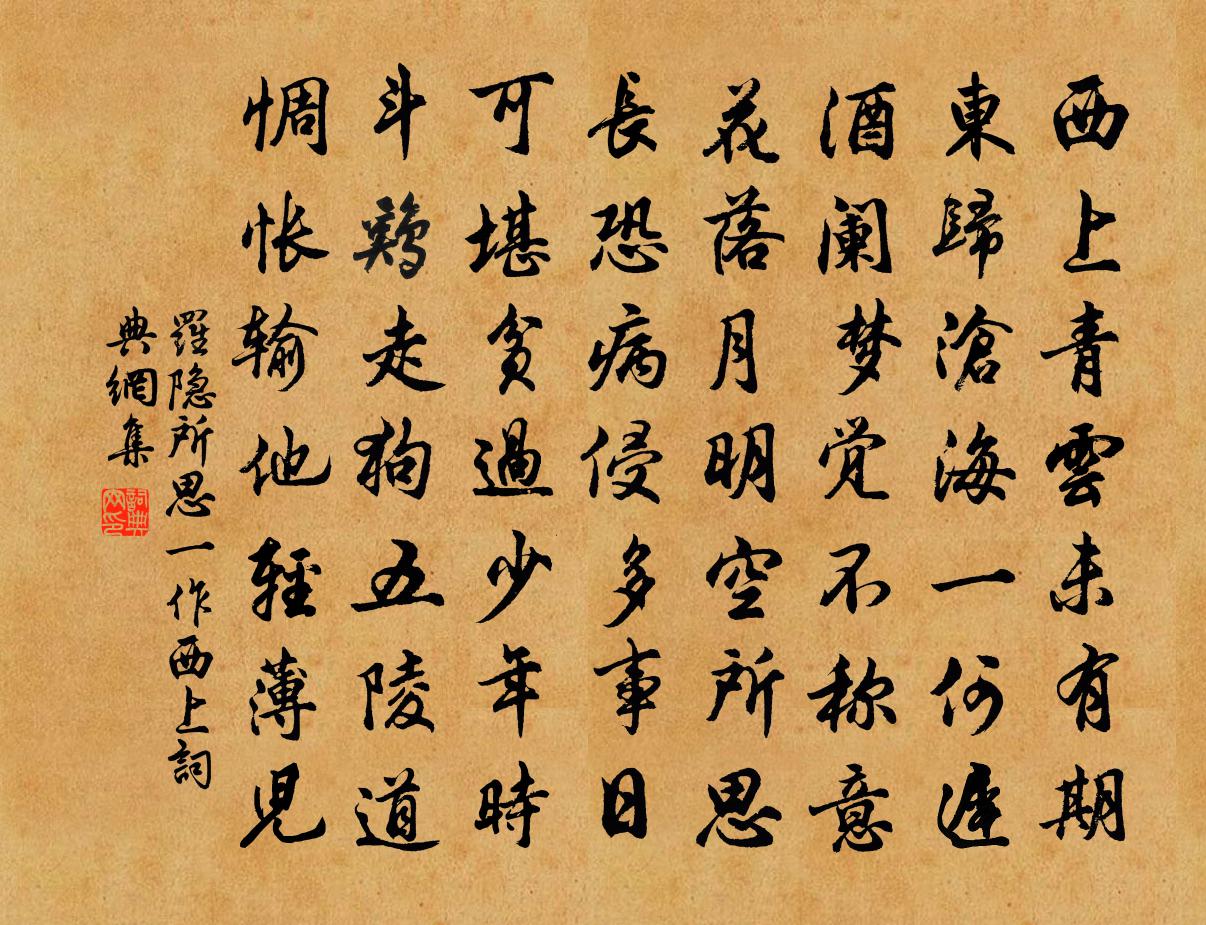 西上青雲未有期
東歸滄海一何遲
酒阑梦觉不称意
花落月明空所思
長恐病侵多事日
可堪貧過少年時
斗鷄走狗五陵道
惆怅输他輕薄児
羅隐所思一作西上詞
典網集
詞典网印